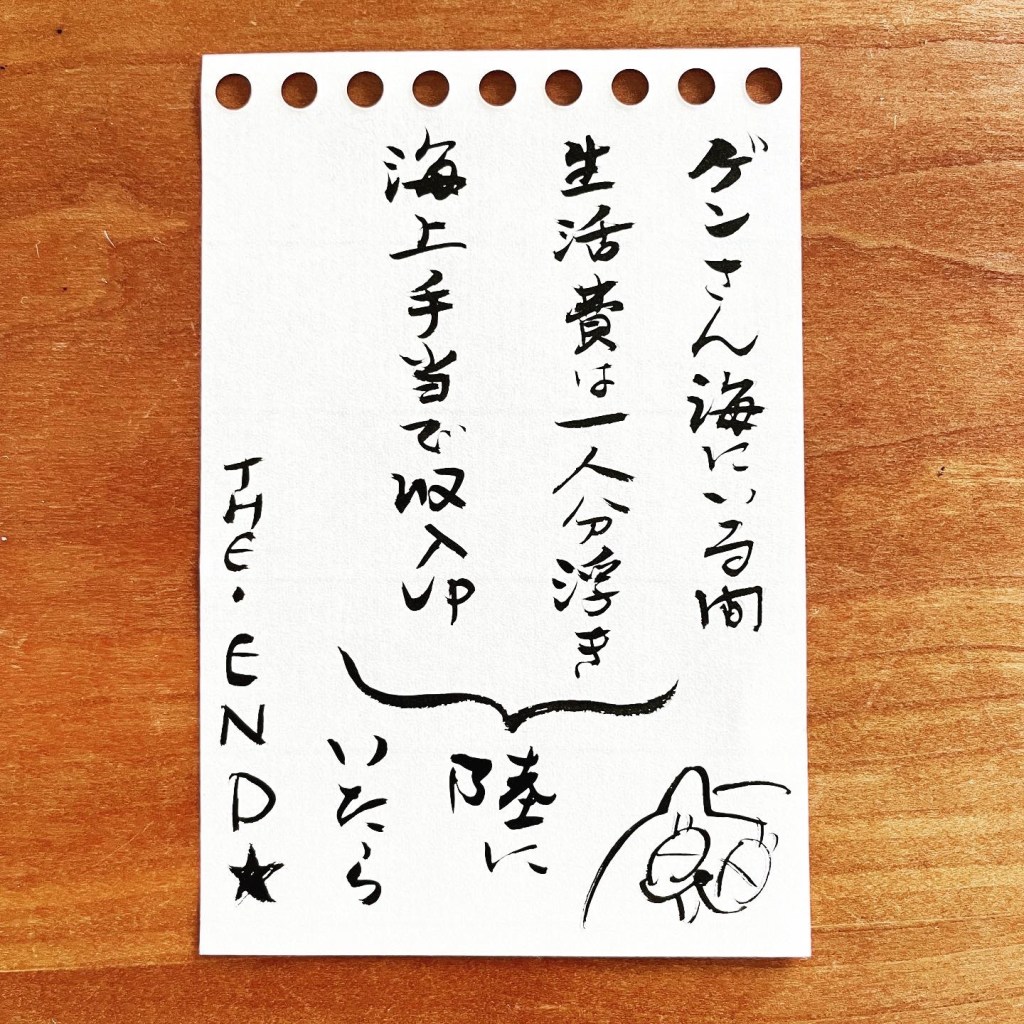 ゲンさん海にいる間
生活費は一人分浮き
海上手当で収入UP
陸に
いたら
THE・END★